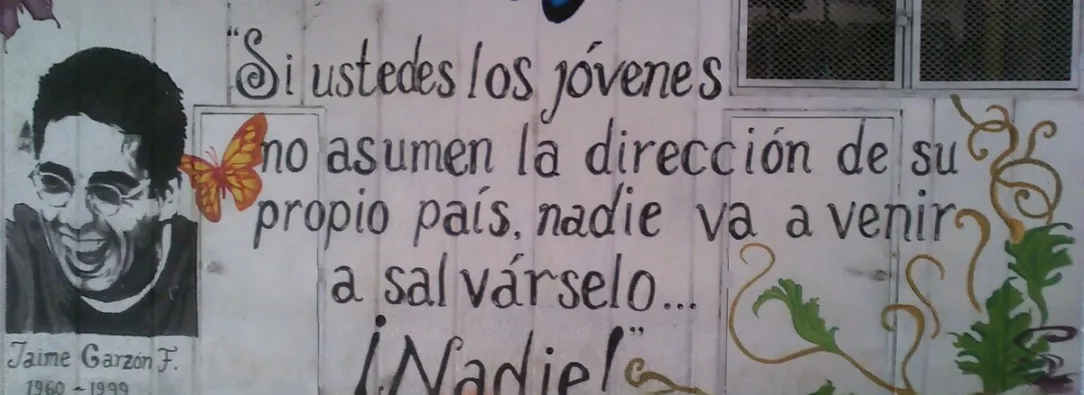 "Si ustedes los jóvenes
no asumen la dirección de su
propio país, nadie va a venir
a salvárselo...
¡Nadie!"
Jaime Garzón F.
1960 ~ 1999